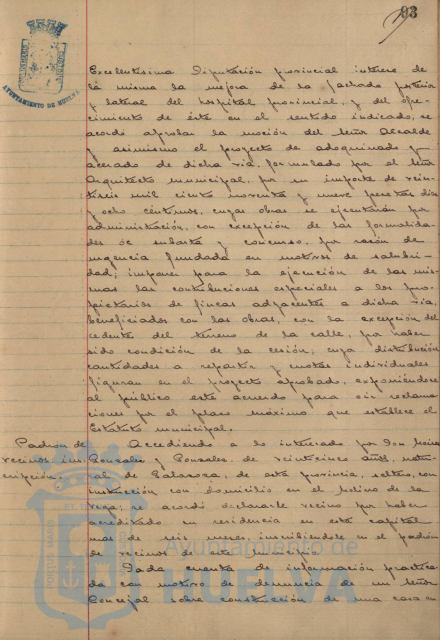 93
AYUNTAMIENTO DE HUELVA
Excelentísima Diputación provincial interese de
la misma la mejora de la fachada posterior
y lateral del hospital provincial, y del ofre-
cimiento de éste en el sentido indicado, se
acordó aprobar la moción del Señor Alcalde
y asimismo el proyecto de adoquinado y
acerado de dicha vía, formulado por el Señor
Arquitecto municipal, por un importe de vein-
tiseis mil ciento noventa y nueve pesetas diez
y ocho céntimos, cuyas obras se ejecutarán por
administración, con excepción de las formalida-
des de subasta y concurso, por razón de
urgencia fundada en motivos de salubri-
dad; imponer para la ejecución de las mis-
mas las contribuciones especiales a los pro-
pietarios de fincas adyacentes a dicha vía,
beneficiados con las obras, con la excepción del
cedente del terreno de la calle, por haber
sido condición de la cesión; cuya distribución
cantidades a repartir y cuotas individuales
figuran en el proyecto aprobado, exponiendose
al público este acuerdo para oir reclama-
ciones por el plazo máximo que establece el
Estatuto municipal.
Padrón de
vecinos ins-
cripción.
Accediendo a lo interesado por Don
Gonzalez y Gonzales, de veinticinco años,
de esta provincia, soltero, con
instrucción con domicilio en el Molino de la
Vega; se acordó declararle vecino por haber
acreditado su residencia en esta capital
mas de seis meses, inscribiendole en el padrón
de vecinos de este municipio.
Dada cuenta de información practica-
da con motivo de denuncia de un Señor
Concejal sobre construcción de una casa en
Ayuntamiento de
HUELVA